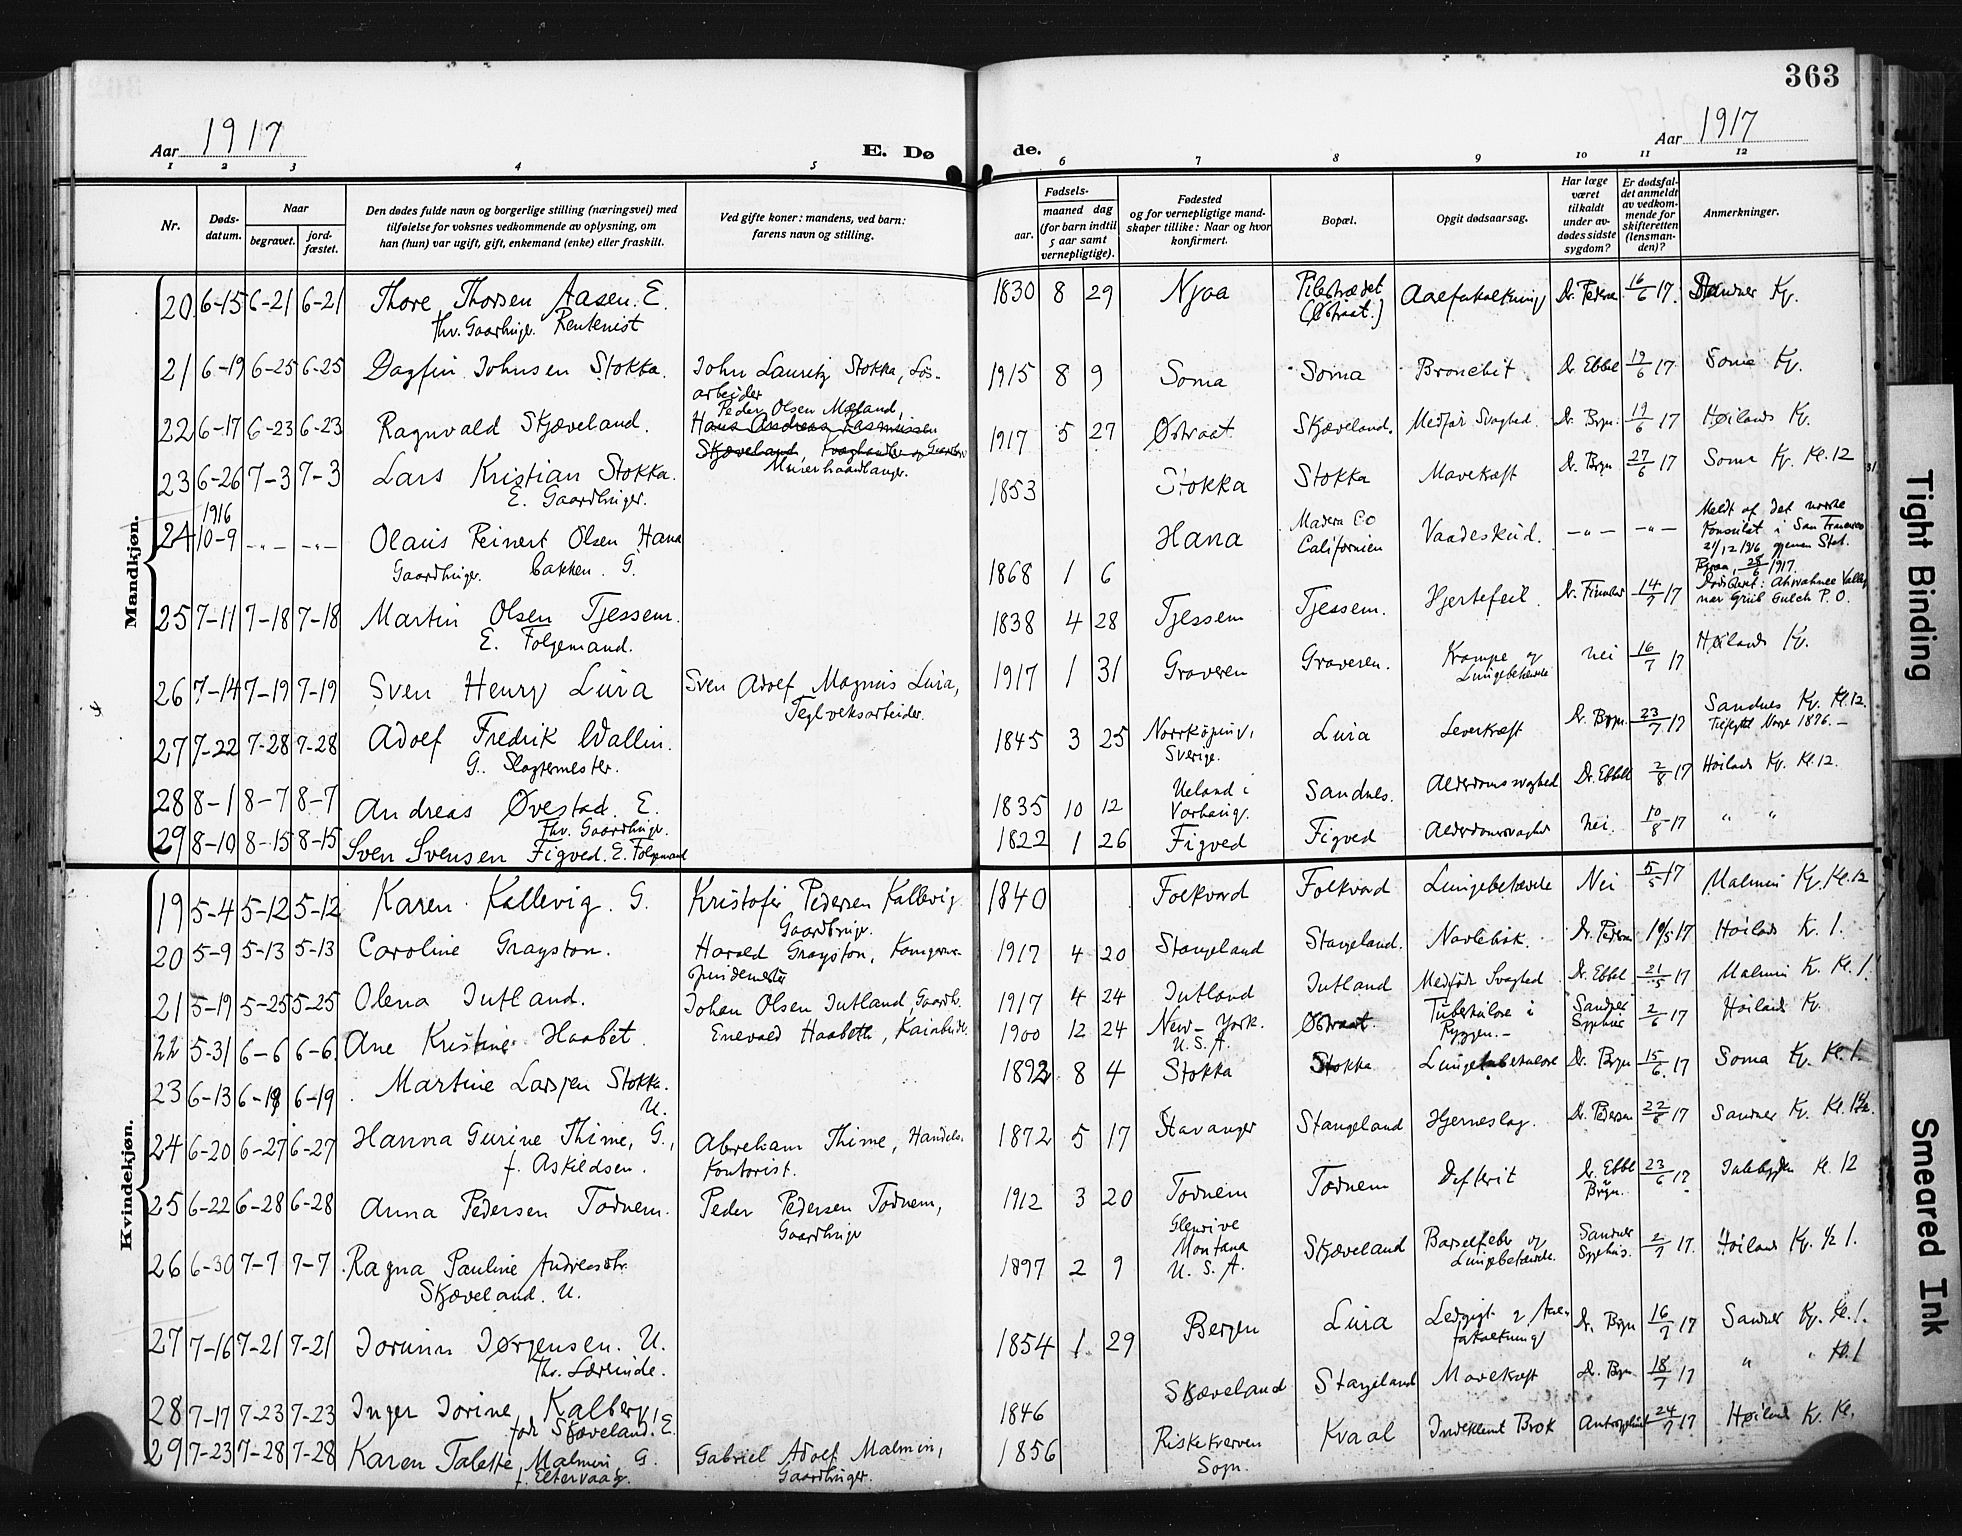 363
Aar 1917
E. Dø
de.
Aar 1917
1 2 3 4 5 6 7 8 9 10 11 12
Nr.
Døds-
datum.
Naar
begravet.
jord-
fæstet.
Den dødes fulde navn og borgerlige stilling (næringsvei) med
tilføielse for voksnes vedkommende av oplysning, om
han (hun) var ugift, gift, enkemand (enke) eller fraskilt.
Ved gifte koner: mandens, ved barn:
farens navn og stilling.
Fødsels-
aar.
maaned dag
(for barn indtil
5 aar samt
vernepligtige).
Fødested
og for vernepligtige mand-
skaper tillike: Naar og hvor
konfirmert.
Bopæl.
Opgit dødsaarsag.
Har læge
været
tilkaldt
under av-
dødes sidste
sygdom?
Er dødsfal-
det anmeldt
av vedkom-
mende for
skifteretten
(lensman-
den)?
Anmerkninger.
Mandkjøn.
20 6-15 6-21 6-21 Thore Thorsen Aasen. E. 1830 8 29 Njaa Pilestrædet Aareforkalkning Dr. Pedersen 16/6 17. Sandnes Kg.
fhv. Gaardbruger. Rentenist (Østraat.)
21 6-19 6-25 6-25 Dagfin Johnsen Stokka. John Lauritz Stokka, Løs- 1915 8 9 Soma Soma Bronchit Dr. Ebbel 19/6 17 Soma Kg.
arbeider
22 6-17 6-23 6-23 Ragnvald Skjæveland. Peder Olsen Mæland, 1917 5 27 Østraat Skjæveland. Medfør Svaghed. Dr. Bryn. 19/6 17 Høilands Kg.
Hans Andreas Rasmussen
Skjæveland, Kvæghandler og Gaardbr.
Murerhaandlanger.
23 6-26 7-3 7-3 Lars Kristian Stokka. 1853 Stokka Stokka Mavekræft Dr. Bryn 27/6 17 Soma Kg. Kl. 12
E. Gaardbruger.
1916
24 10-9 -"- -"- Olaus Reinert Olsen Hana 1868 1 6 Hana Madera Co Vaadeskud. -"- -"- Meldt af det norske
Gaardbruger. bakken. G. Californien Konsulat i San Francisco
21/12 1916 gjennem Stat.
Ryraa, 28/6 1917.
Dødssted: Ahwahnee Valley
nær Grub Gulch P.O.
25 7-11 7-18 7-18 Martin Olsen Tjessem. 1838 4 28 Tjessem Tjessem. Hjertefeil. 14/7 17
E. Folgemand.
26 7-14 7-19 7-19 Sven Henry Lura Sven Adolf Magnus Lura, 1917 1 31 Graveren Graveren. Krampe og nei 16/7 17 Høilands Kg.
Teglverksarbeider. Lungebetændelse
27 7-22 7-28 7-28 Adolf Fredrik Wallin. 1845 3 25 Norrkøping, Lura Leverkræft Dr. Bryn. 23/7 17 Sandnes Kg. Kl. 12.
G. Slagtermester. Sverige. Tilflyttet Norge 1876.
28 8-1 8-7 8-7 Andreas Øvestad. E. 1835 10 12 Ueland i Sandnes. Alderdomssvaghed Dr. Ebbel 2/8 17 Høilands Kg. Kl. 12.
Fhv. Gaardbruger. Varhaug.
29 8-10 8-15 8-15 Sven Svensen Figved. E. Folgemand 1822 1 26 Figved Figved Alderdomssvaghed nei. 10/8 17 " "
Kvindekjøn.
19 5-4 5-12 5-12 Karen Kallevig. G. Kristofer Pedersen Kallevig 1840 Folkvord Folkvord Lungebetændelse Nei 5/5 17 Malmin Kg. Kl. 12
Gaardbruger.
20 5-9 5-13 5-13 Caroline Grayston. Harald Grayston, Kamgarns- 1917 4 20 Stangeland Stangeland. Navlebrok. Dr. Pedersen 10/5 17 Høilands K. 1.
spindemester
21 5-19 5-25 5-25 Olena Jutland. Johan Olsen Jutland, Gaardb. 1917 4 24 Jutland Jutland Medfødt Svaghed Dr. Ebbel 21/5 17 Malmin K. Kl. 1
22 5-31 6-6 6-6 Ane Kristine Haabet. Enevald Haabeth, 1900 12 24 New-York. Østraat. Tuberkulose i Sandnes 2/6 17 Høilands Kg.
U.S.A. Ryggen.- Sygehus
23 6-13 6-19 6-19 Martine Larsen Stokka. 1892 8 4 Stokka Stokka Lungetuberkulose Dr. Bryn 15/6. 17 Soma Kg. Kl. 1.
U.
24 6-20 6-27 6-27 Hanna Gurine Thime, G., Abreham Thime, Handels- 1872 5 17 Stavanger Stangeland Hjerneslag. Dr. Pedersen 22/6 17 Sandnes Kg. Kl. 12.
f. Askildsen. Kontorist.
25 6-22 6-28 6-28 Anna Pedersen Todnem. Peder Pedersen Todnem, 1912 3 20 Todnem Todnem Difterit Dr. Ebbel 23/6 17. Julebygden Kl. 12
Gaardbruger Bryn.
26 6-30 7-7 7-7 Ragna Pauline Andreasdtr. 1897 2 9 Glendive Skjæveland Barselfeber og Sandnes 2/7 17. Høilands Kg. 1/2 1.
Skjæveland. U. Montana Lungebetændelse. Sygehus.
U.S.A.
27 7-16 7-21 7-21 Jorunn Jørgensen. U. 1854 1 29 Bergen Lura Ledgigt & Aare- Dr. Bryn 16/7 17 Sandnes Kg. Kl. 1.
Fhv. Lærerinde. forkalkning
28 7-17 7-23 7-23 Inger Jorine Kalberg, 1846 Skjæveland Stangeland Mavekræft Dr. Bryn 18/7 17 " " Kl. 1
født Skjæveland. E.
29 7-23 7-28 7-28 Karen Talette Malmin, G. Gabriel Adolf Malmin, 1856 Riskekverven Kvaal Indeklemt Brok 24/7 17 Høilands K. Kl.
f. Eltervaag. Gaardbruger. Sogn.
Tight Binding
Smeared Ink